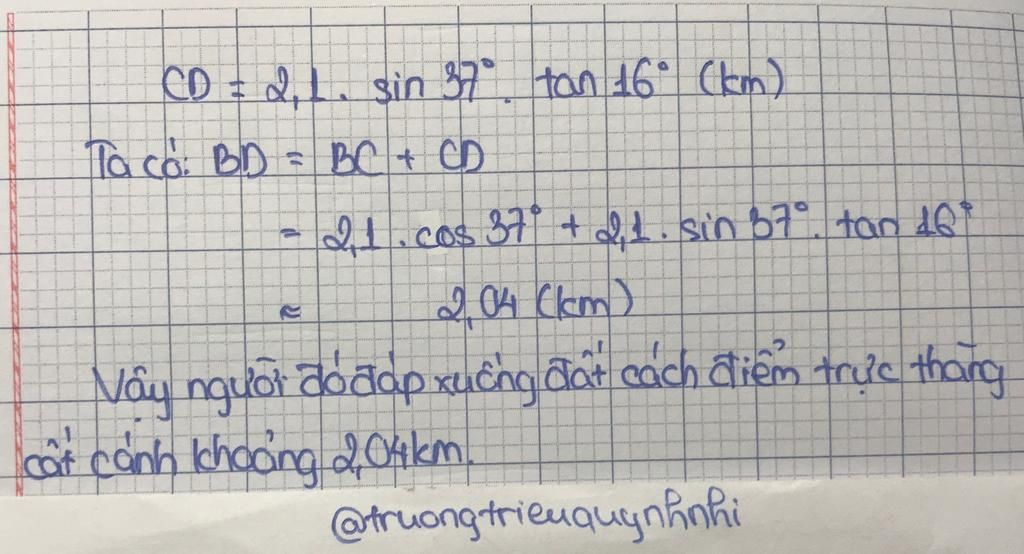 CD = 2,1. sin 37°. tan 16° (km)
Ta có: BD = BC + CD
= 2,1 . cos 37° + 2,1. sin 37°. tan 16°
≈ 2,04 (km)
Vậy người đó đáp xuống đất cách điểm trực thăng
cất cánh khoảng 2,04km.
@truongtrieuquynhnhi